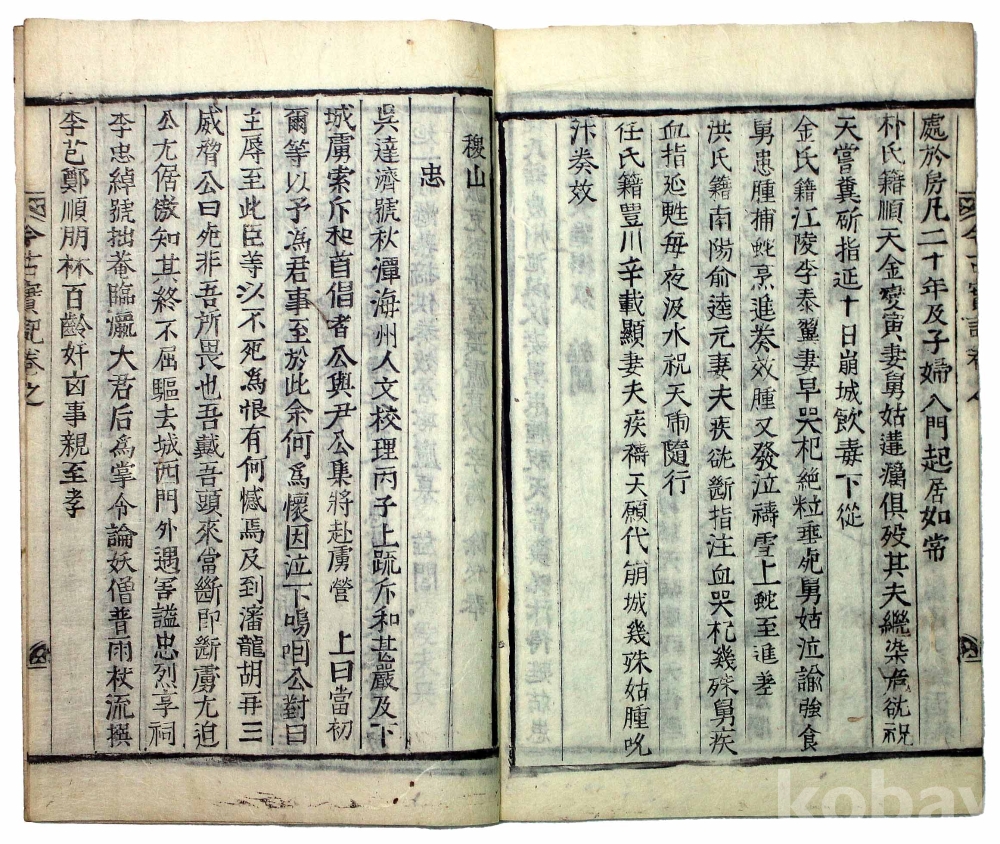 處於房凡二十年及子婦入門起居如常
朴氏籍順天金變寅妻舅姑遘癘俱歿其夫繼染危欲祝
天嘗糞斫指延十日崩城飮毒下從
金氏籍江陵李泰翼妻早哭杞絶粒垂死舅姑泣諭強食
舅患腫捕蛇烹進奏效腫又發泣禱雪上蛇至進差
洪氏籍南陽俞逵元妻夫疾欲斷指注血哭杞幾殊舅疾
血指延甦每夜汲水祝天虎隨行
任氏籍豊川辛載顯妻夫疾禱天願代崩城幾殊姑腫吮
汁奏效
稷山
忠
吳達濟號秋潭海州人文校理丙子上䟽斥和甚嚴及下
城虜索斥和首倡者公與尹公集將赴虜營 上曰當初
爾等以予爲君事至於此余何爲懷因泣下嗚咽公對曰
主辱至此臣等以不死爲恨有何憾焉及到瀋龍胡再三
威脅公曰死非吾所畏也吾戴吾頭來當斷即斷虜尤迫
公尤倨傲知其終不屈驅去城西門外遇害謚忠烈享祠
李忠綽號拙菴臨瀛大君后爲掌令論妖僧普雨杖流撰
李芑鄭順朋林百齡奸凶事親至孝
今古實記卷之